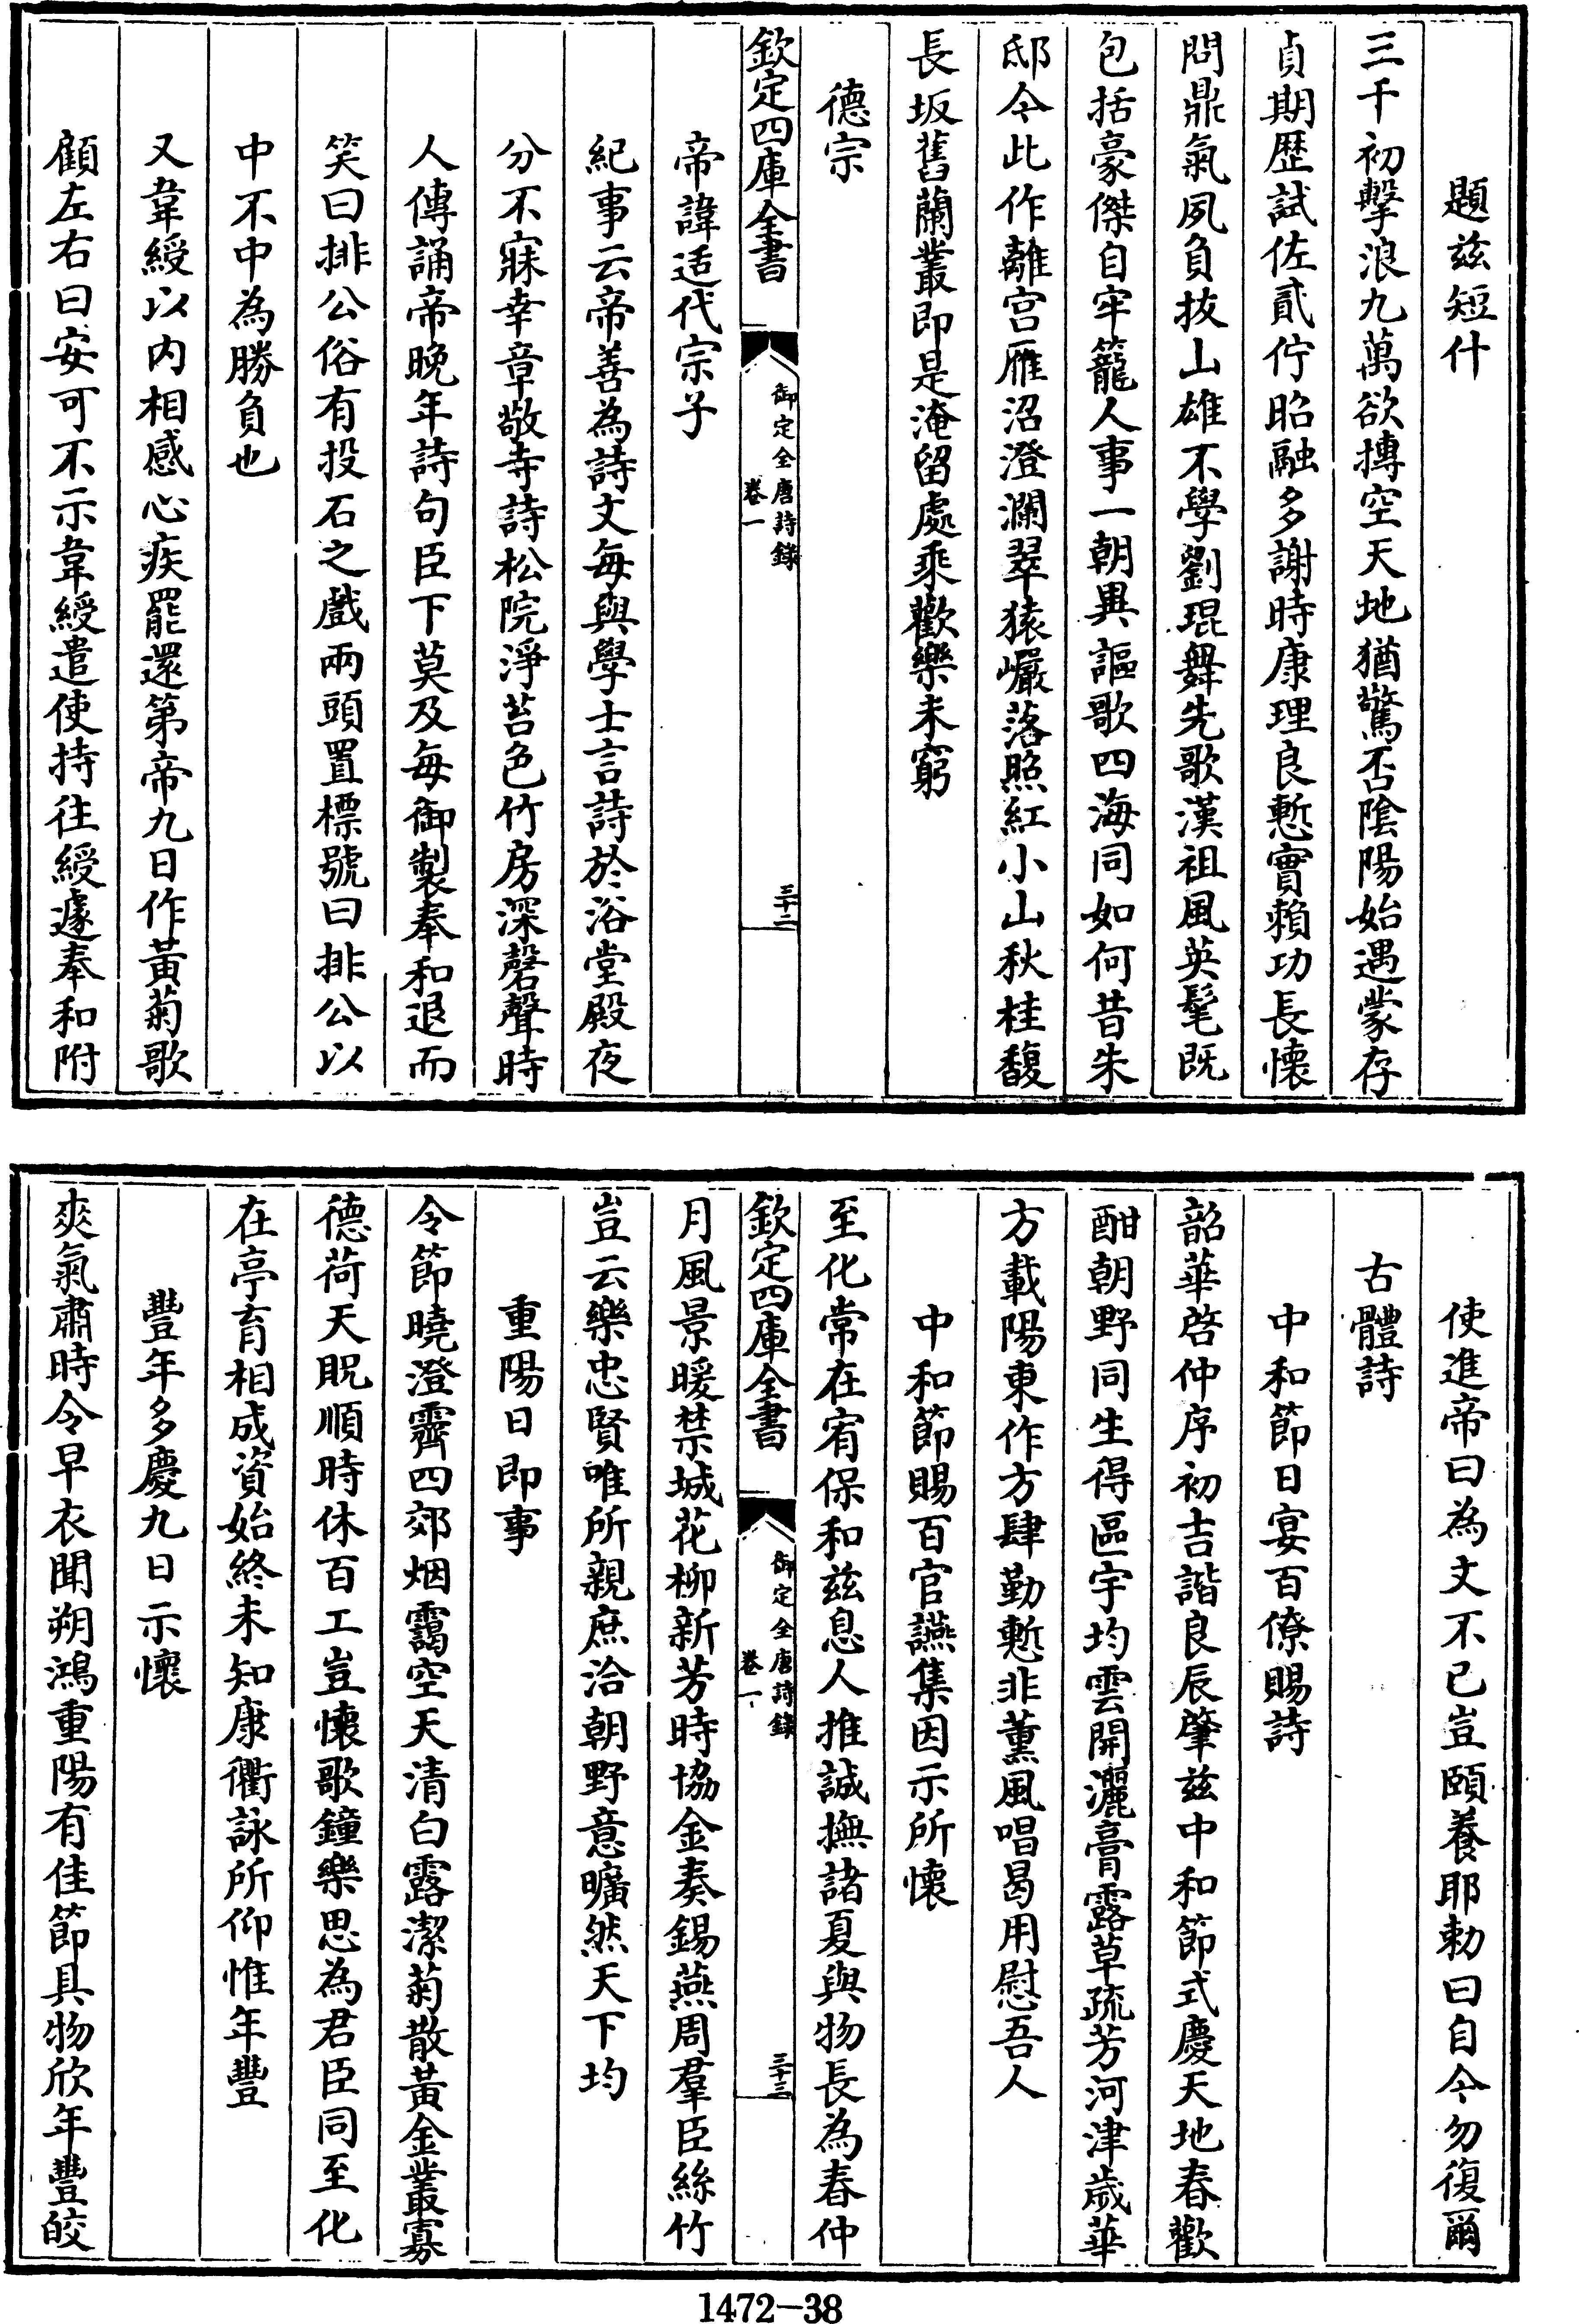 題兹短什
三千初擊浪九萬欲摶空天地猶驚否陰陽始遇蒙存
貞期歴試佐貳佇昭融多謝時康理良慙實賴功長懷
問鼎氣夙負抜山雄不學劉琨舞先歌漢祖風英髦既
包括豪傑自牢籠人事一朝異謳歌四海同如何昔朱
邸今此作離宫雁沼澄瀾翠猿巖落照紅小山秋桂馥
長坂舊蘭叢即是淹留處乘歡樂未窮
德宗
欽定四庫全書
御定全唐詩録
卷一
三十二
帝諱适代宗子
紀事云帝善為詩文每與學士言詩於浴堂殿夜
分不寐幸章敬寺詩松院淨苔色竹房深磬聲時
人傳誦帝晩年詩句臣下莫及每御製奉和退而
笑曰排公俗有投石之戲兩頭置標號曰排公以
中不中為勝負也
又韋綬以内相感心疾罷還第帝九日作黄菊歌
顧左右曰安可不示韋綬遣使持往綬遽奉和附
使進帝曰為文不已豈頤養耶勅曰自今勿復爾
古體詩
中和節日宴百僚賜詩
韶華啓仲序初吉諧良辰肇兹中和節式慶天地春歡
酣朝野同生得區宇均雲開灑膏露草疏芳河津歲華
方載陽東作方肆勤慙非薰風唱曷用慰吾人
中和節賜百官讌集因示所懷
至化常在宥保和兹息人推誠撫諸夏與物長為春仲
欽定四庫全書
御定全唐詩録
卷一
三十三
月風景暖禁城花柳新芳時協金奏錫燕周羣臣絲竹
豈云樂忠賢唯所親庶洽朝野意曠然天下均
重陽日即事
令節曉澄霽四郊烟靄空天清白露潔菊散黄金叢寡
德荷天貺順時休百工豈懷歌鐘樂思為君臣同至化
在亭育相成資始終未知康衢詠所仰惟年豐
豐年多慶九日示懷
爽氣肅時令早衣聞朔鴻重陽有佳節具物欣年豐皎
1472—38